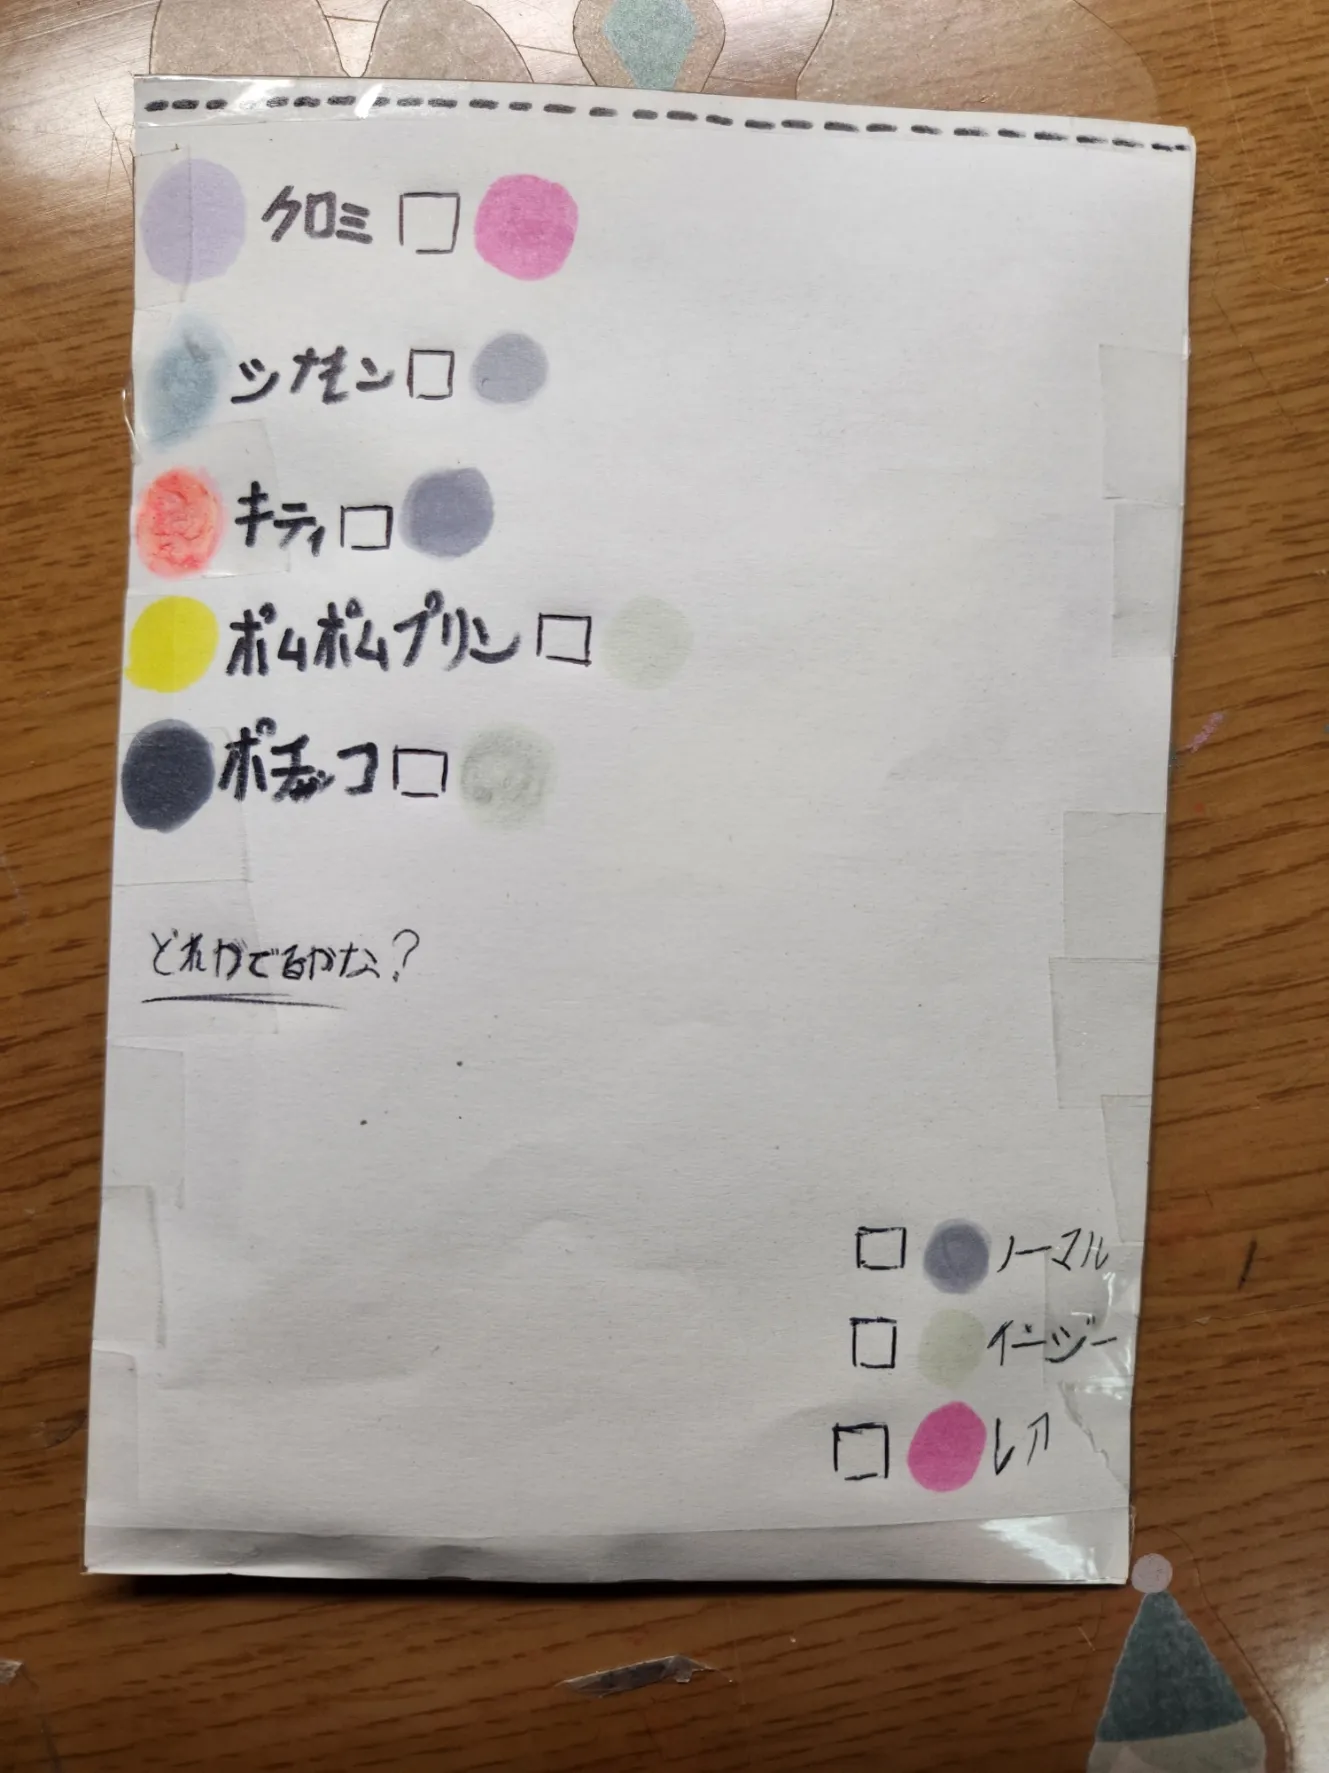 クロミ
シナモン
キティ
ポムポムプリン
ポチャッコ
どれがでるかな?
ノーマル
イージー
レア